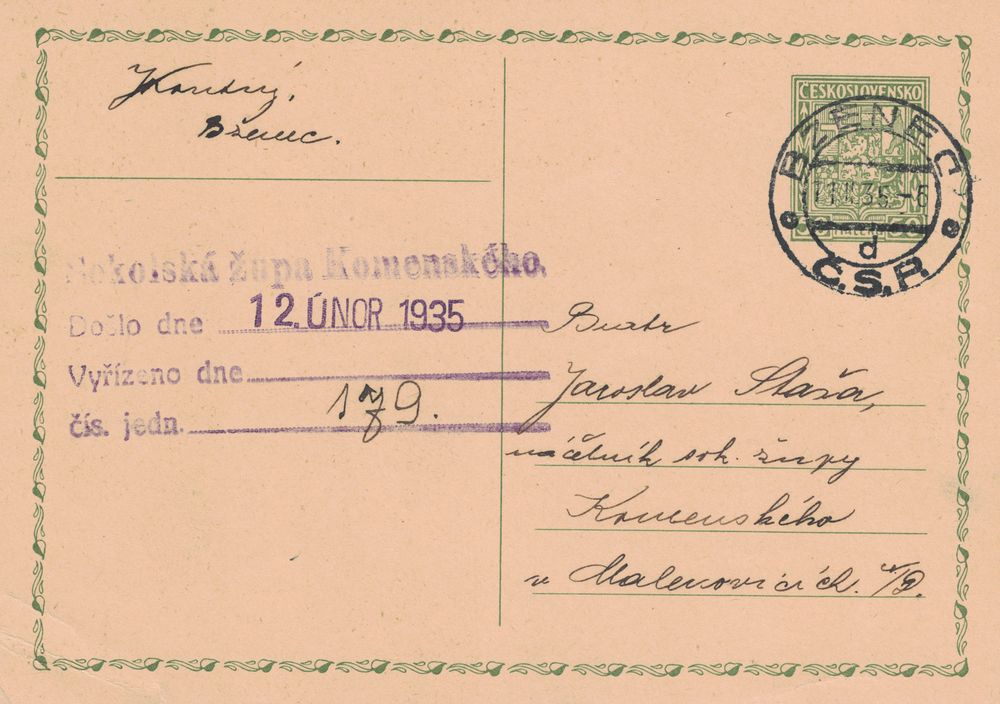 Bzenec.
ČESKOSLOVENSKO
50 HALÉŘŮ 50
BZENEC
11.II.35.-6
d
Č.S.P.
Sokolská župa Komenského.
Došlo dne 12. ÚNOR 1935
Vyřízeno dne
čís. jedn. 179.
Bratr
Jaroslav Staša,
náčelník sok. župy
Komenského
v Malenovicích.